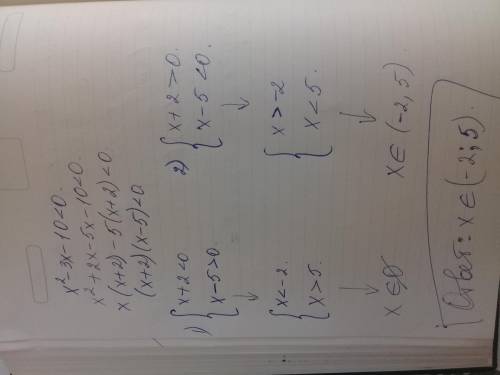 x²-3x-10<0.
x²+2x-5x-10<0.
x(x+2)-5(x+2)<0
(x+2)(x-5)<0
1) { x+2<0
x-5>0.
↓
{ x<-2.
x>5.
↓
x∈∅
2) { x+2>0.
x-5<0.
↓
{ x>-2
x<5.
↓
x∈(-2,5).
Ответ: x∈(-2;5).